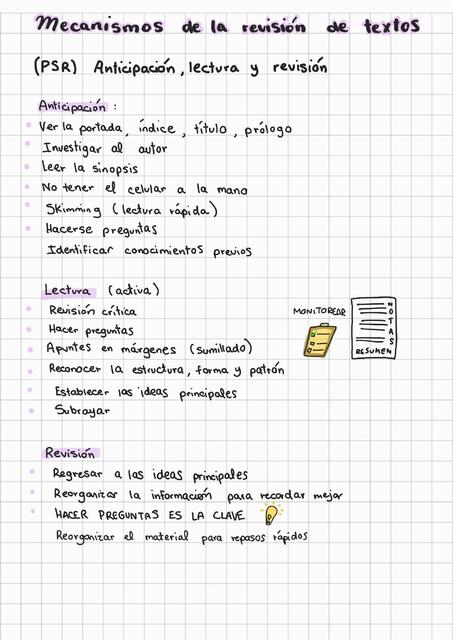 Mecanismos de la revisión de textos
(PSR) Anticipación, lectura y revisión
Anticipación :
Ver la portada, índice, título, prólogo
Investigar al autor
Leer la sinopsis
No tener el celular a la mano
Skimming (lectura rápida)
Hacerse preguntas
Identificar conocimientos previos
Lectura (activa)
Revisión crítica
Hacer preguntas
Apuntes en márgenes (sumillado)
Reconocer la estructura, forma y patrón
Establecer las ideas principales
Subrayar
MONITOREAR
NOTAS
RESUMEN
Revisión
Regresar a las ideas principales
Reorganizar la información para recordar mejor
HACER PREGUNTAS ES LA CLAVE
Reorganizar el material para repasos rápidos